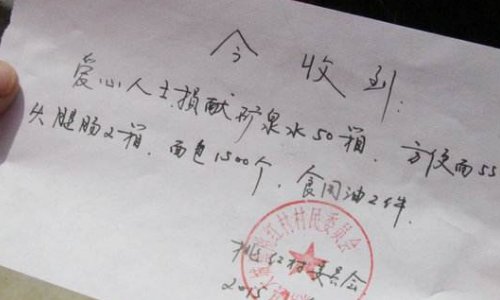 今收到：
爱心人士捐献矿泉水50箱．方便面55
火腿肠2箱．面包1500个．食用油2件．
红村村民委员会
桃红村委员会
2015